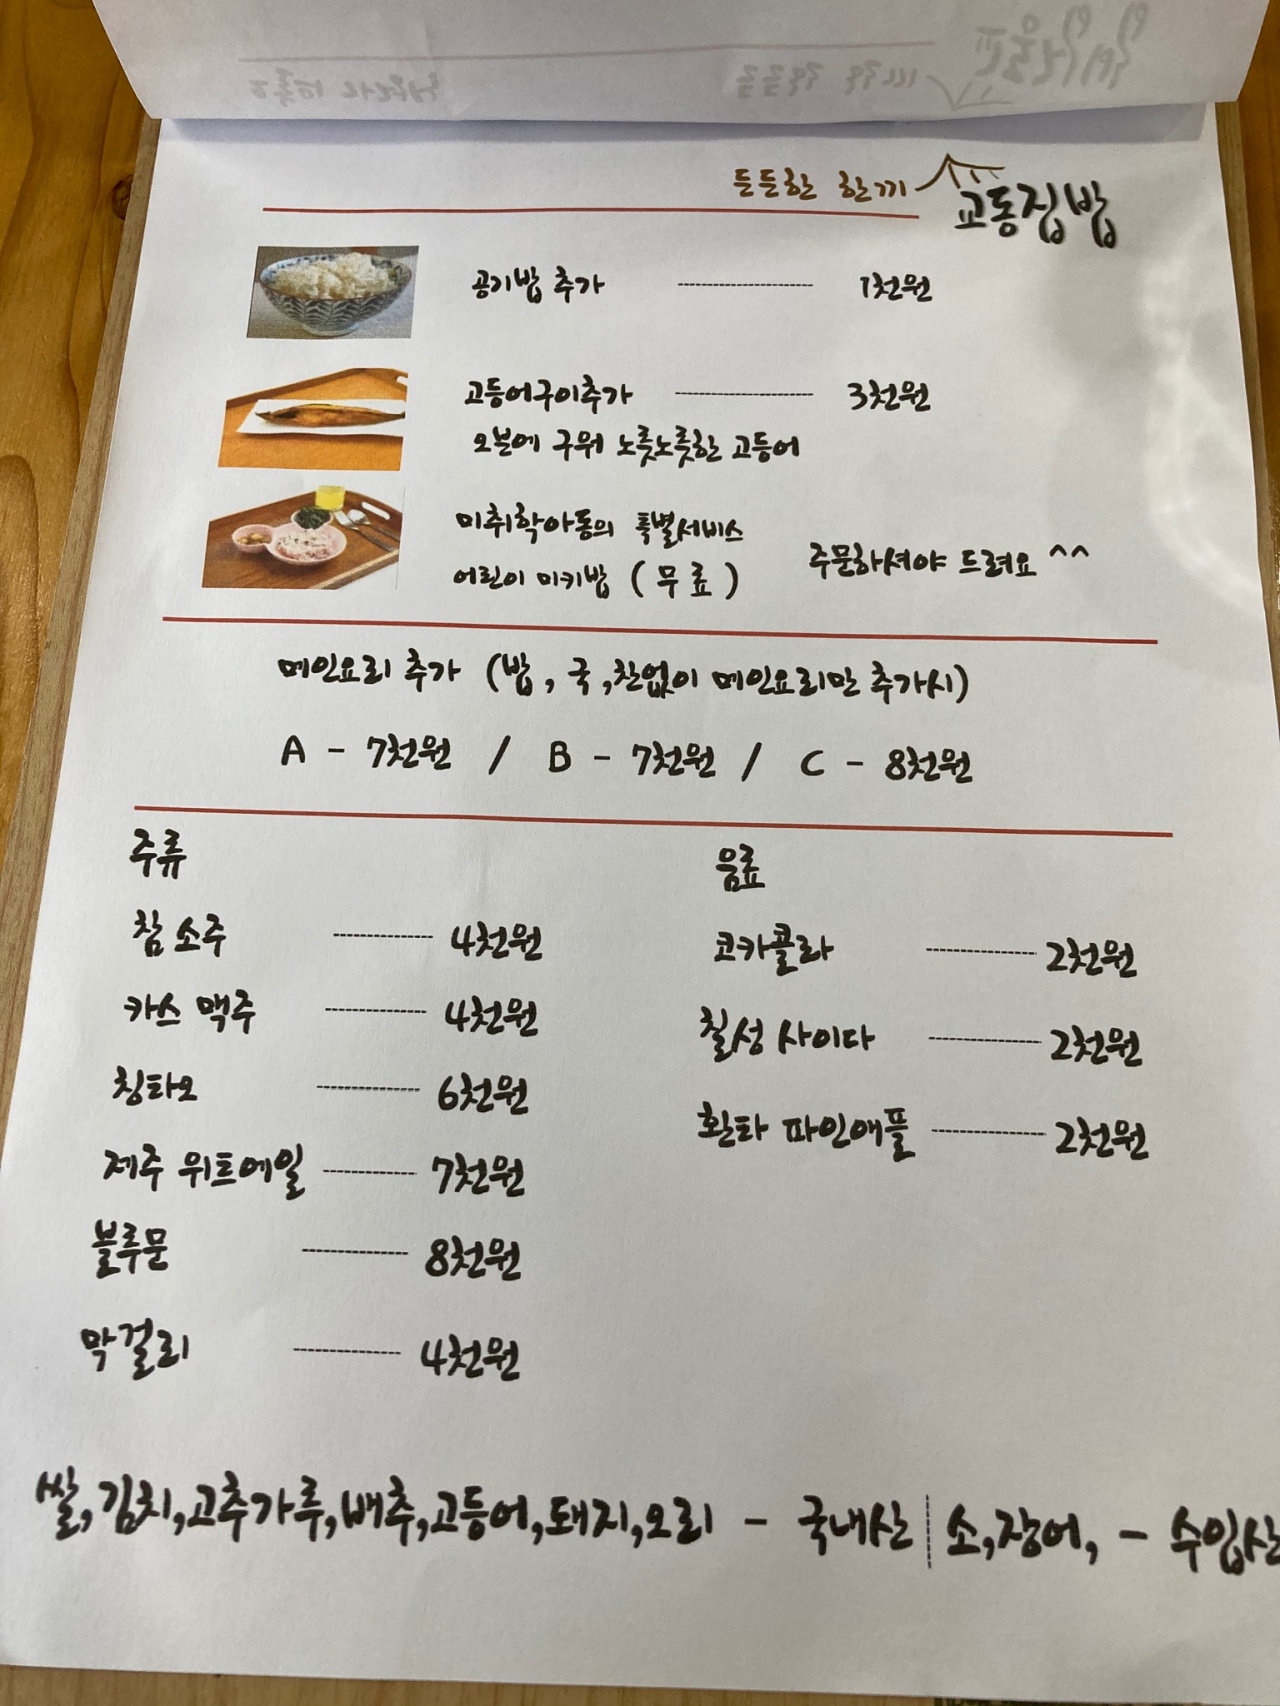 든든한 한끼 교동집밥
공기밥 추가 1천원
고등어구이추가 3천원
오븐에 구워 노릇노릇한 고등어
미취학아동의 특별서비스
어린이 미키밥 (무료) 주문하셔야 드려요 ^^
메인요리 추가 (밥, 국,찬없이 메인요리만 추가시)
A - 7천원 / B - 7천원 / C - 8천원
주류
참 소주 4천원
카스 맥주 4천원
칭타오 6천원
제주 위트에일 7천원
블루문 8천원
막걸리 4천원
음료
코카콜라 2천원
칠성 사이다 2천원
환타 파인애플 2천원
쌀,김치,고추가루,배추,고등어,돼지,오리 - 국내산 | 소,장어, - 수입산